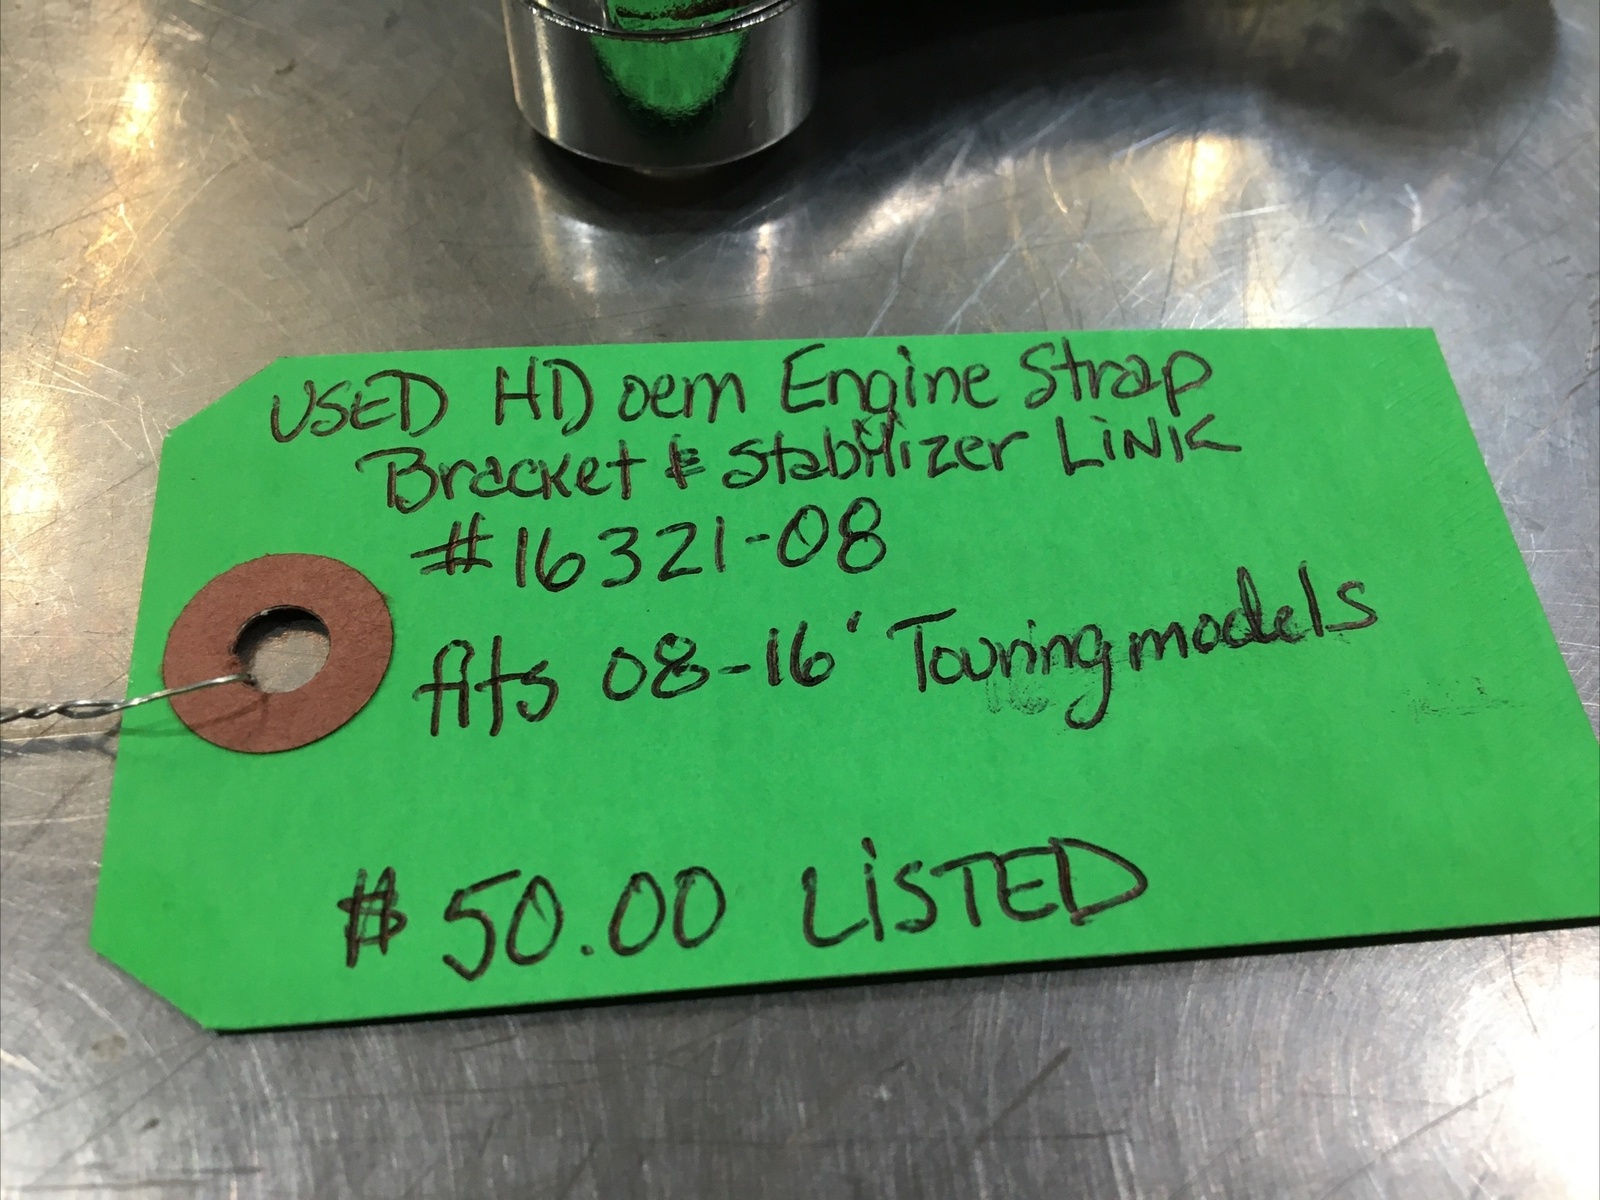 USED HD oem Engine Strap
Bracket & Stabilizer LiNK
#16321-08
fits 08-16' Touring models
$50.00 LiSTED